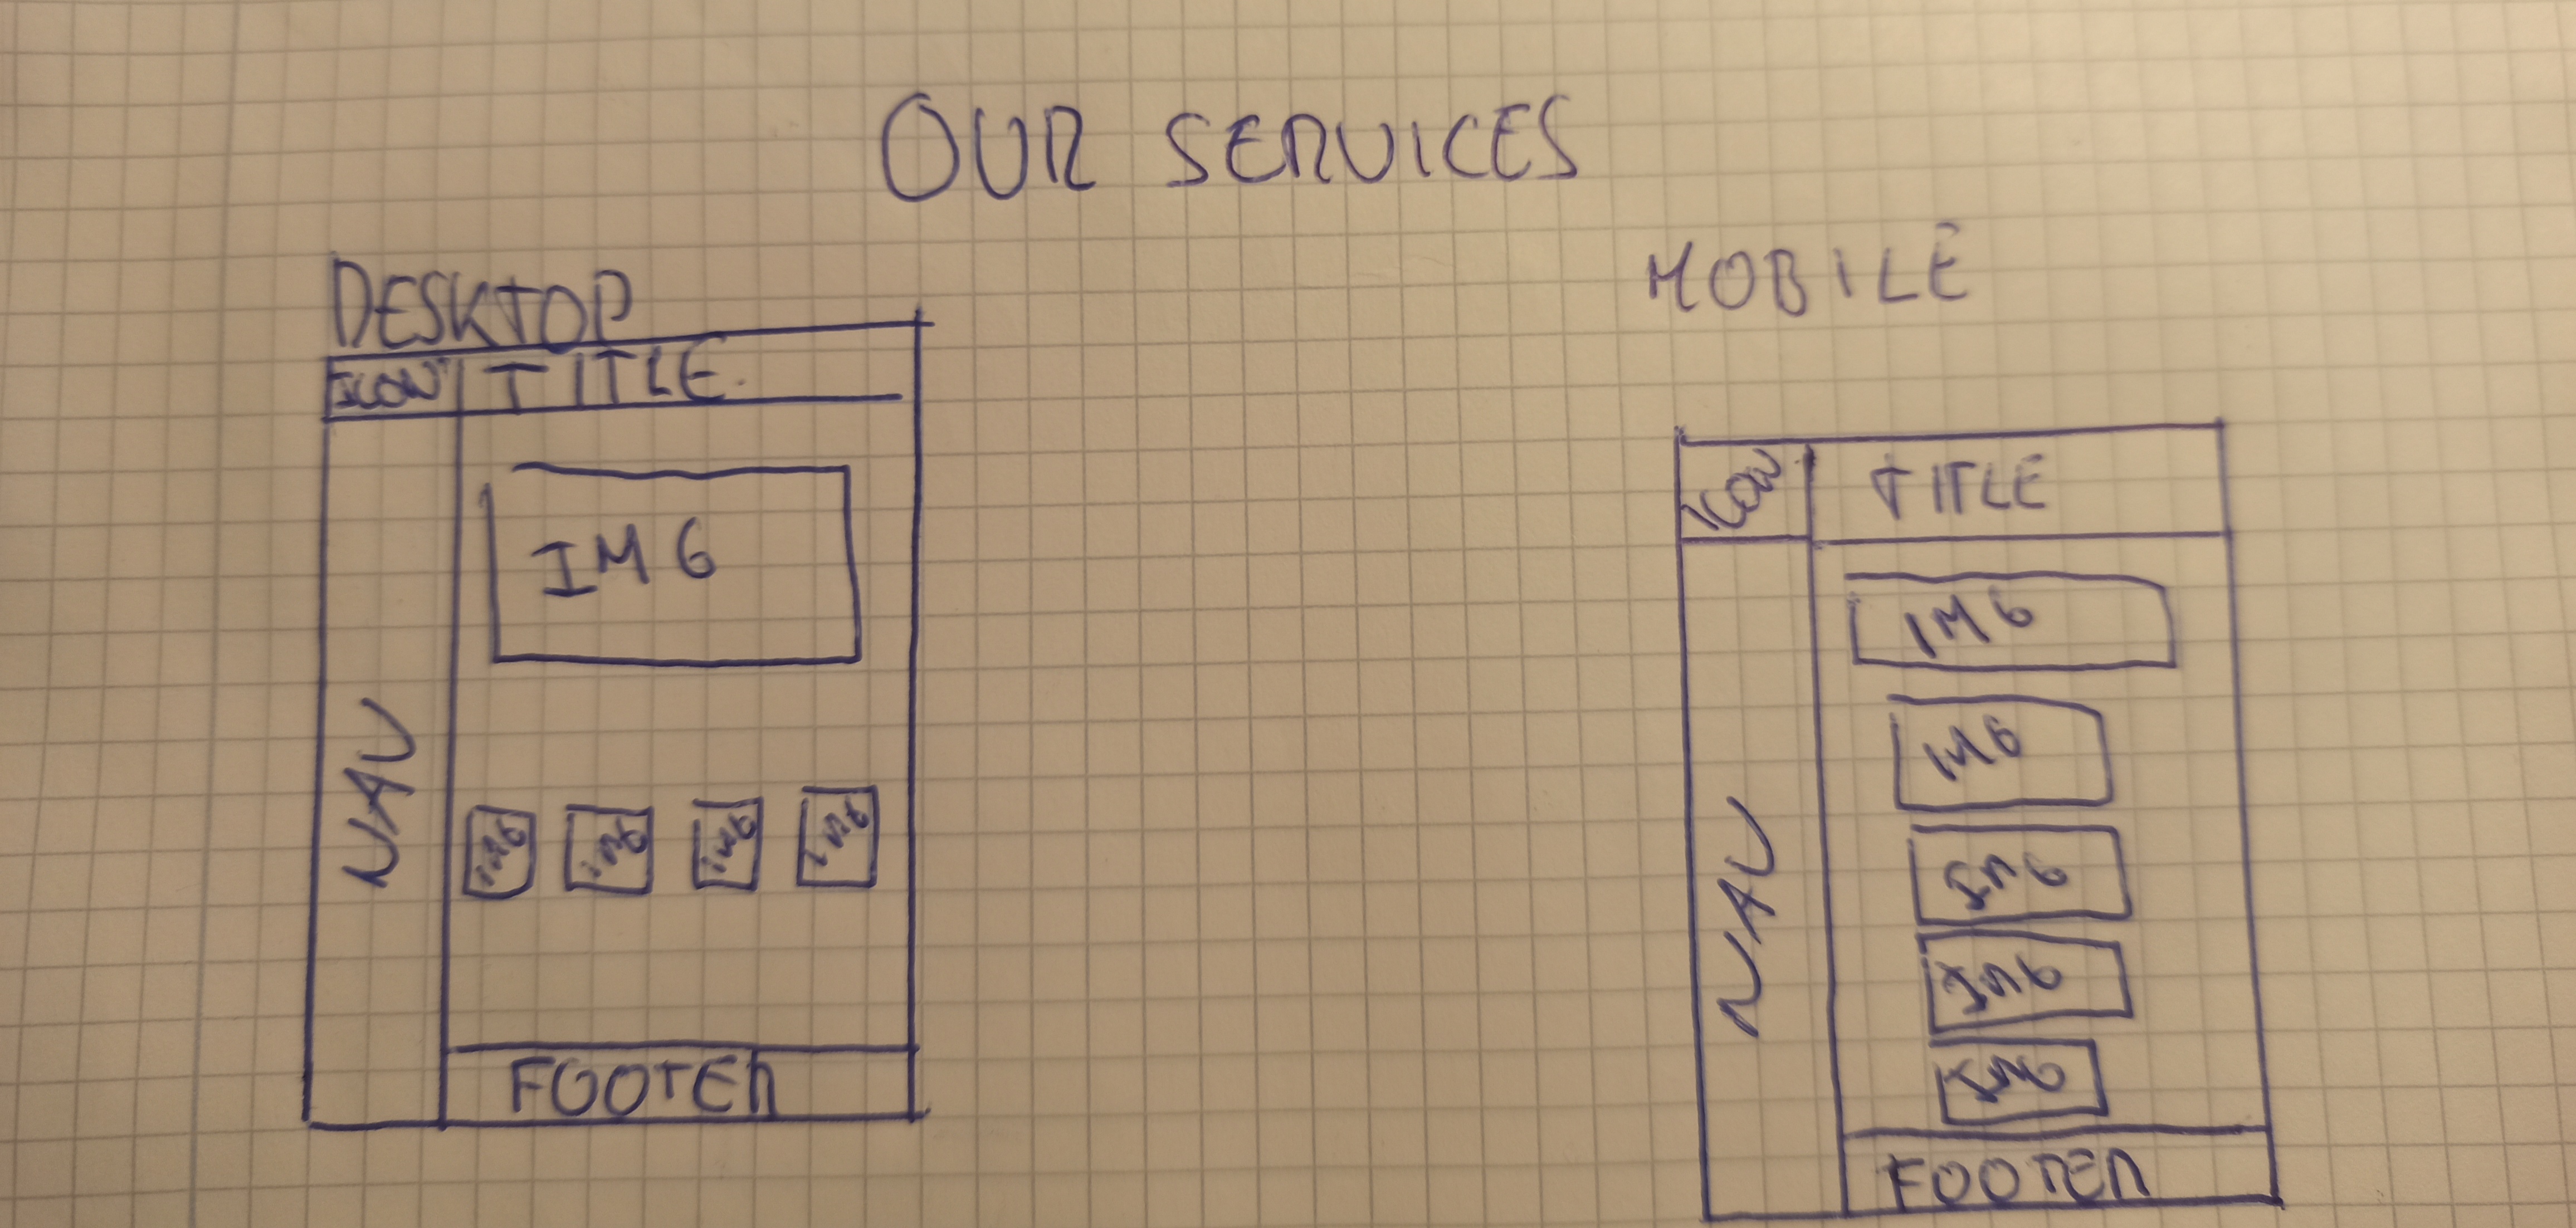 OUR SERVICES
DESKTOP
ICON TITLE
IMG
NAV
IMG IMG IMG IMG
FOOTER
MOBILE
ICON TITLE
IMG
IMG
IMG
IMG
IMG
NAV
FOOTER